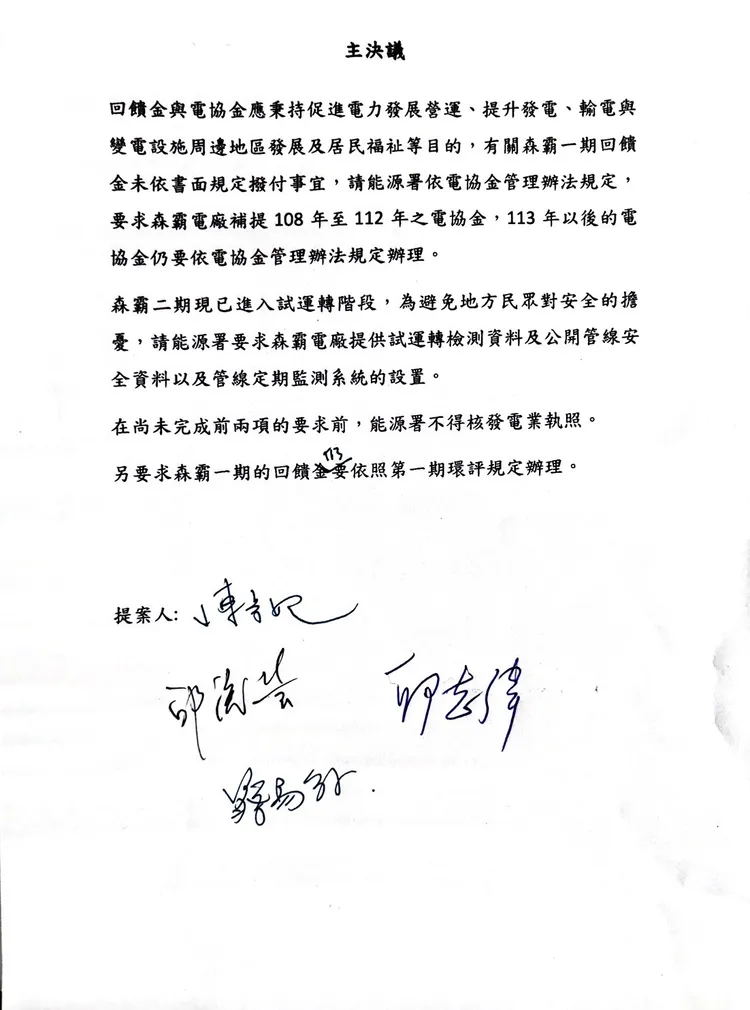 主決議
回饋金與電協金應秉持促進電力發展營運、提升發電、輸電與
變電設施周邊地區發展及居民福祉等目的，有關森霸一期回饋
金未依書面規定撥付事宜，請能源署依電協金管理辦法規定，
要求森霸電廠補提 108 年至 112 年之電協金，113 年以後的電
協金仍要依電協金管理辦法規定辦理。
森霸二期現已進入試運轉階段，為避免地方民眾對安全的擔
憂，請能源署要求森霸電廠提供試運轉檢測資料及公開管線安
全資料以及管線定期監測系統的設置。
在尚未完成前兩項的要求前，能源署不得核發電業執照。
另要求森霸一期的回饋金要依照第一期環評規定辦理。
提案人: 陳亭妃
邱議瑩 邱志偉